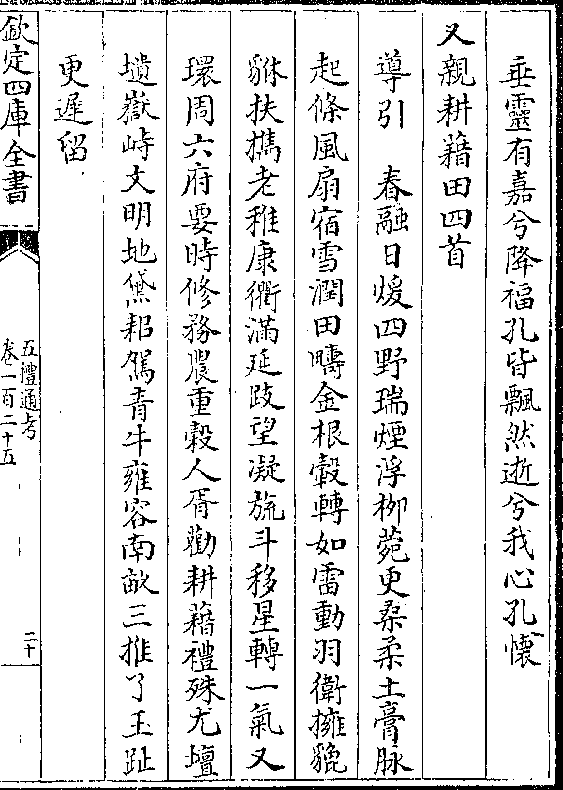 垂靈有嘉兮降福孔皆飄然逝兮我心孔懷
又親耕藉田四首
導引　春融日煖四野瑞煙浮栁菀更桑柔土膏脉
起條風扇宿雪潤田疇金根轂轉如雷動羽衛擁貔
貅扶攜老稚康衢滿延跂望凝旒斗移星轉一氣又
環周六府要時修務農重穀人胥勸耕藉禮殊尤壇
壝嶽峙文明地黛耜駕青牛雍容南畝三推了玉趾
更遲留
欽定四庫全書
五禮通考
卷一百二十五
二十